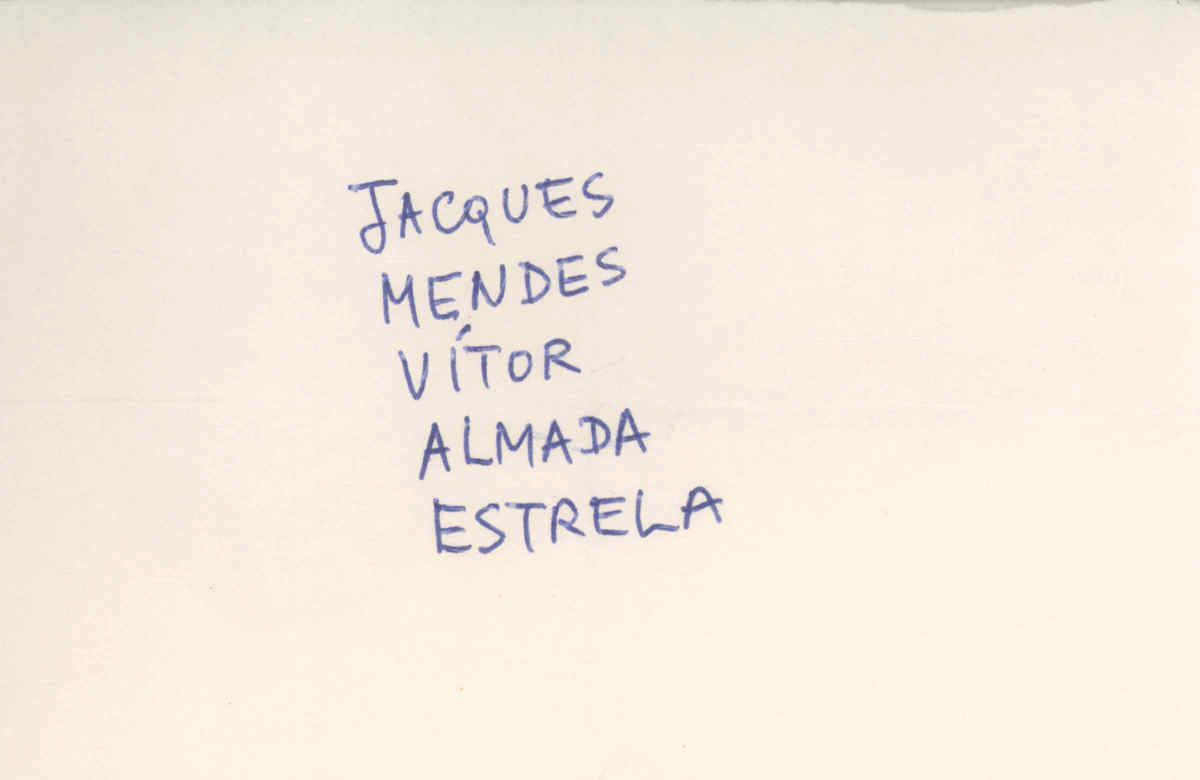 JACQUES
MENDES
VÍTOR
ALMADA
ESTRELA